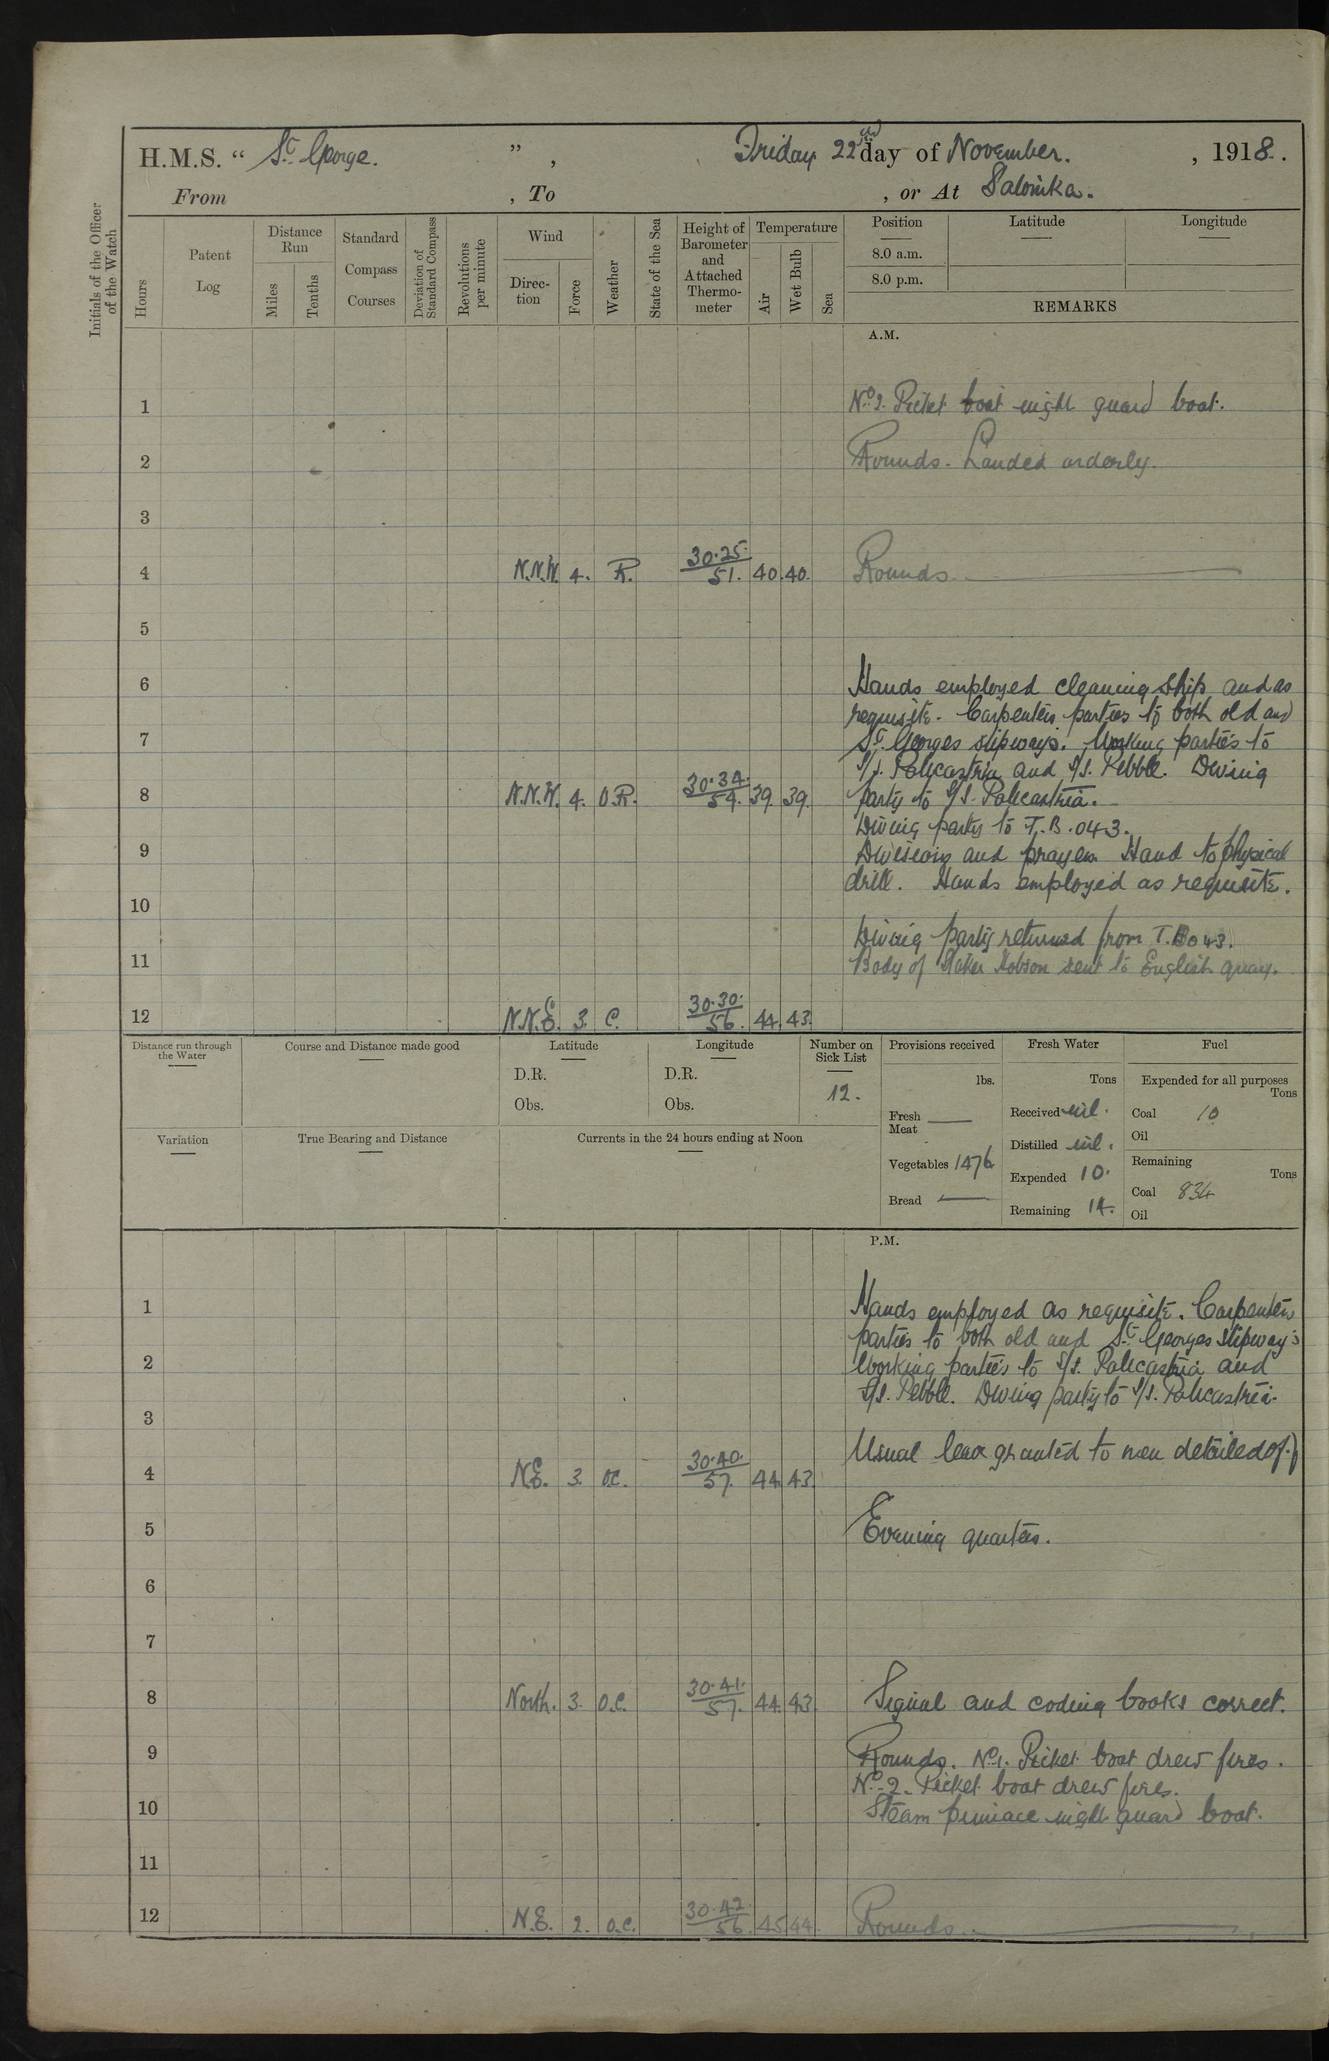 H.M.S. “ St. George. ” , Friday 22nd day of November. , 1918.
From , To , or At Salonika.
Initials of the Officer of the Watch
Hours
Patent Log
Distance Run
Miles
Tenths
Standard Compass Courses
Deviation of Standard Compass
Revolutions per minute
Wind
Direction
Force
Weather
State of the Sea
Height of Barometer and Attached Thermometer
Temperature
Air
Wet Bulb
Sea
Position
8.0 a.m.
8.0 p.m.
Latitude
Longitude
REMARKS
A.M.
1 No. 2. Picket boat night guard boat.
2 Rounds. Landed orderly.
3
4 N.N.W. 4. R. 30.25. 51. 40. 40. Rounds
5
6 Hands employed cleaning ship and as
requisite. Carpenters parties to both old and
7 St. Georges slipways. Working parties to
S/S. Policastria and S/S. Pebble. Diving
8 N.N.W. 4. O.R. 30.34. 54. 39. 39. party to S/S. Policastria.
Diving party to T.B. 043.
9 Divisions and prayers. Hand to physical
drill. Hands employed as requisite.
10
Diving party returned from T.B 043.
11 Body of Stoker Hobson sent to English quay.
12 N.N.E. 3. C. 30.30. 56. 44. 43.
Distance run through the Water
Course and Distance made good
Latitude
D.R.
Obs.
Longitude
D.R.
Obs.
Number on Sick List
12.
Provisions received
lbs.
Fresh Meat
Vegetables 1476
Bread
Fresh Water
Tons
Received nil.
Distilled nil.
Expended 10.
Remaining 14.
Fuel
Expended for all purposes
Tons
Coal 10
Oil
Remaining
Tons
Coal 834
Oil
Variation
True Bearing and Distance
Currents in the 24 hours ending at Noon
P.M.
1 Hands employed as requisite. Carpenters
parties to both old and St. Georges slipway's
2 Working parties to S/S. Policastria and
S/S. Pebble. Diving party to S/S. Policastria.
3
Usual leave granted to men detailed off
4 N.E. 3. O.C. 30.40. 57. 44. 43.
5 Evening quarters.
6
7
8 North. 3. O.C. 30.41. 57. 44. 43. Signal and coding books correct.
9 Rounds. No. 1. Picket boat drew fires.
No. 2. Picket boat drew fires.
10 Steam pinnace night guard boat.
11
12 N.E. 2. O.C. 30.42. 56. 45. 44. Rounds